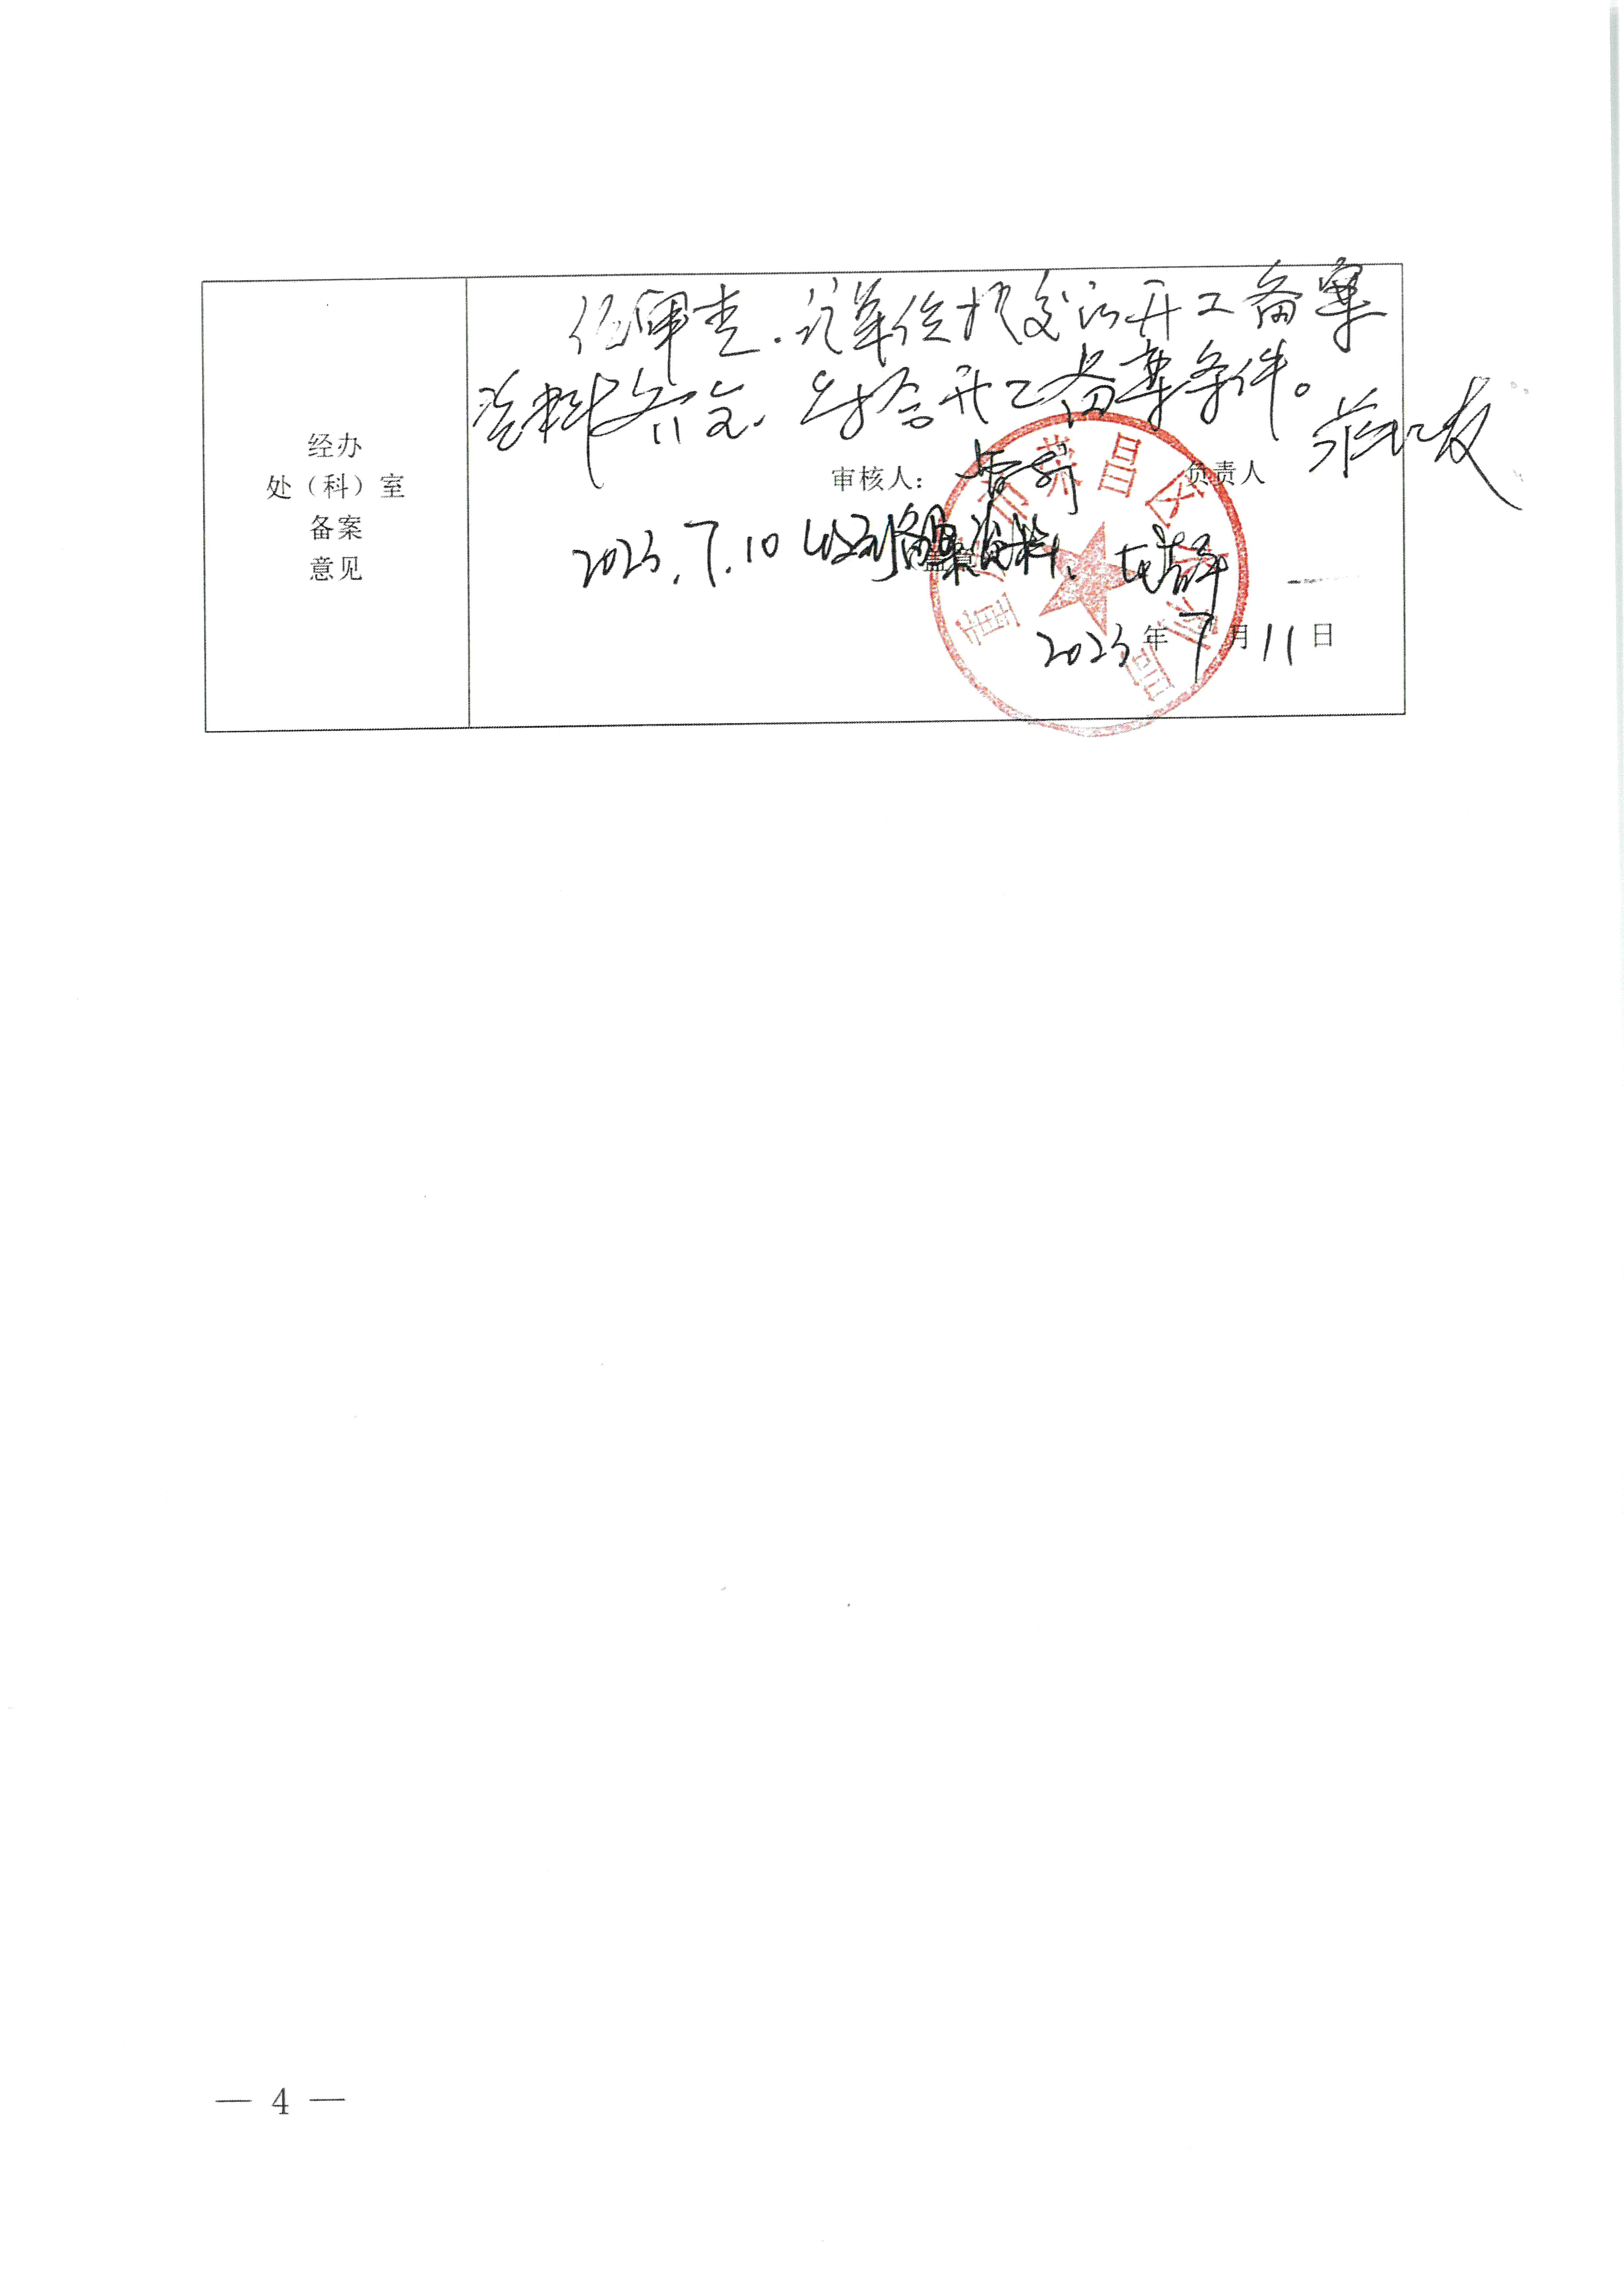 经办
处（科）室
备案
意见
经审查.该单位提交的开工备案
资料齐全.符合开工备案条件。
审核人：
负责人
2023.7.10 收到备案资料.
2023年7月11日
重 市荣昌区
— 4 —